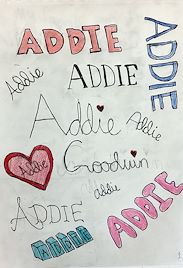 ADDIE
ADDIE
Addie
ADDIE
Addie
Addie
Addie
Goodwin
Addie
ADDIE
ADDIE
ADDIE